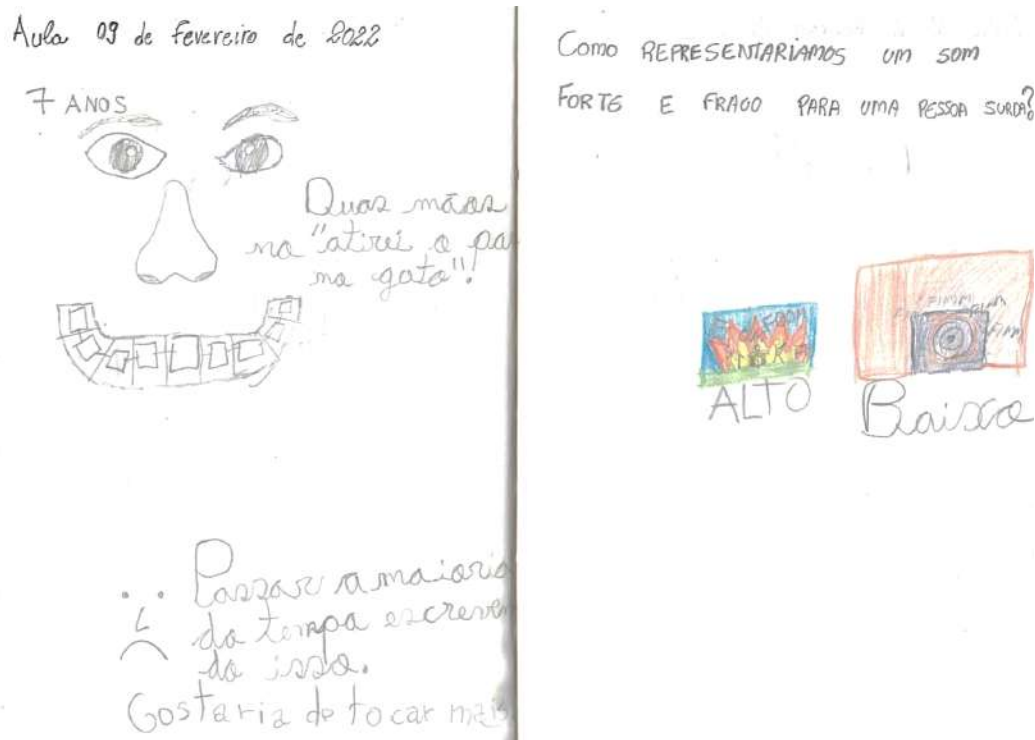 Aula 09 de fevereiro de 2022
7 ANOS
Duas mãos
no "atirei o pa
no gato"!
Passar a maioria
do tempo escreven
do isso.
Gostaria de tocar mais
Como REPRESENTARIAMOS UM SOM
FORTE E FRACO PARA UMA PESSOA SURDA?
FIMM
ALTO
Baixo